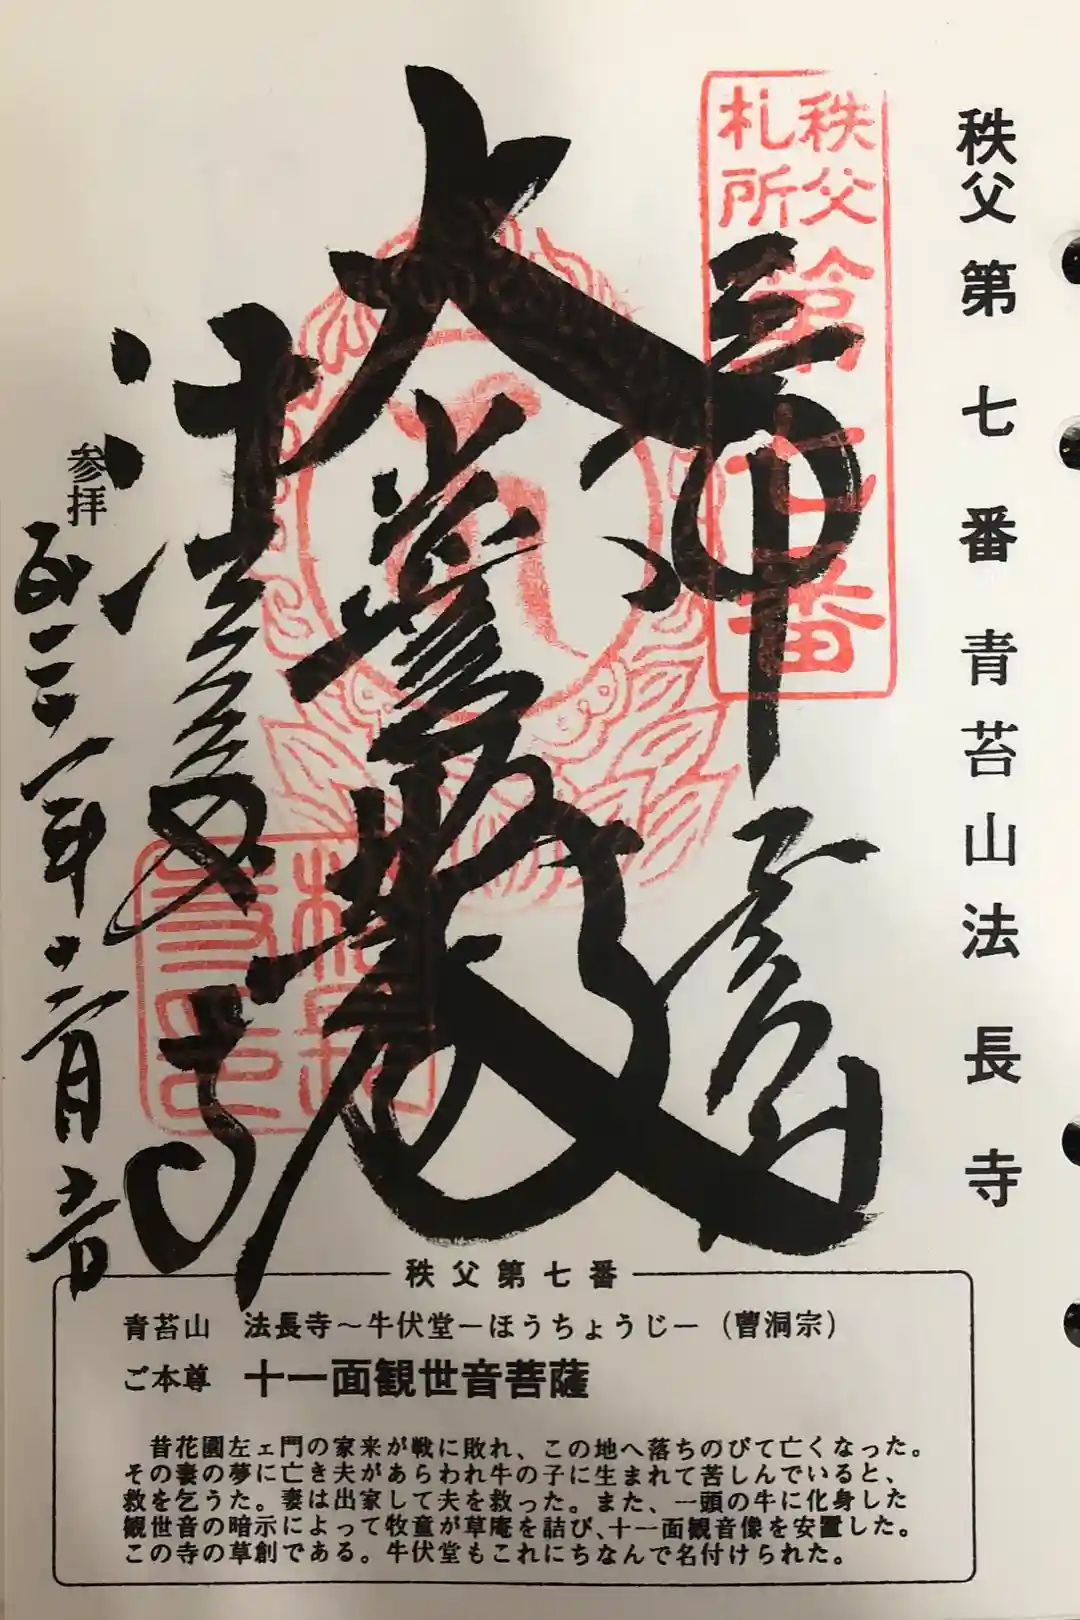 秩父第七番青苔山法長寺
秩父
札所
第七番
大
法
寺
参拝
年
月
秩父第七番
青苔山 法長寺～牛伏堂－ほうちょうじ－（曹洞宗）
ご本尊 十一面観世音菩薩
昔花園左ェ門の家来が戦に敗れ、この地へ落ちのびて亡くなった。
その妻の夢に亡き夫があらわれ牛の子に生まれて苦しんでいると、
救を乞うた。妻は出家して夫を救った。また、一頭の牛に化身した
観世音の暗示によって牧童が草庵を詰び、十一面観音像を安置した。
この寺の草創である。牛伏堂もこれにちなんで名付けられた。